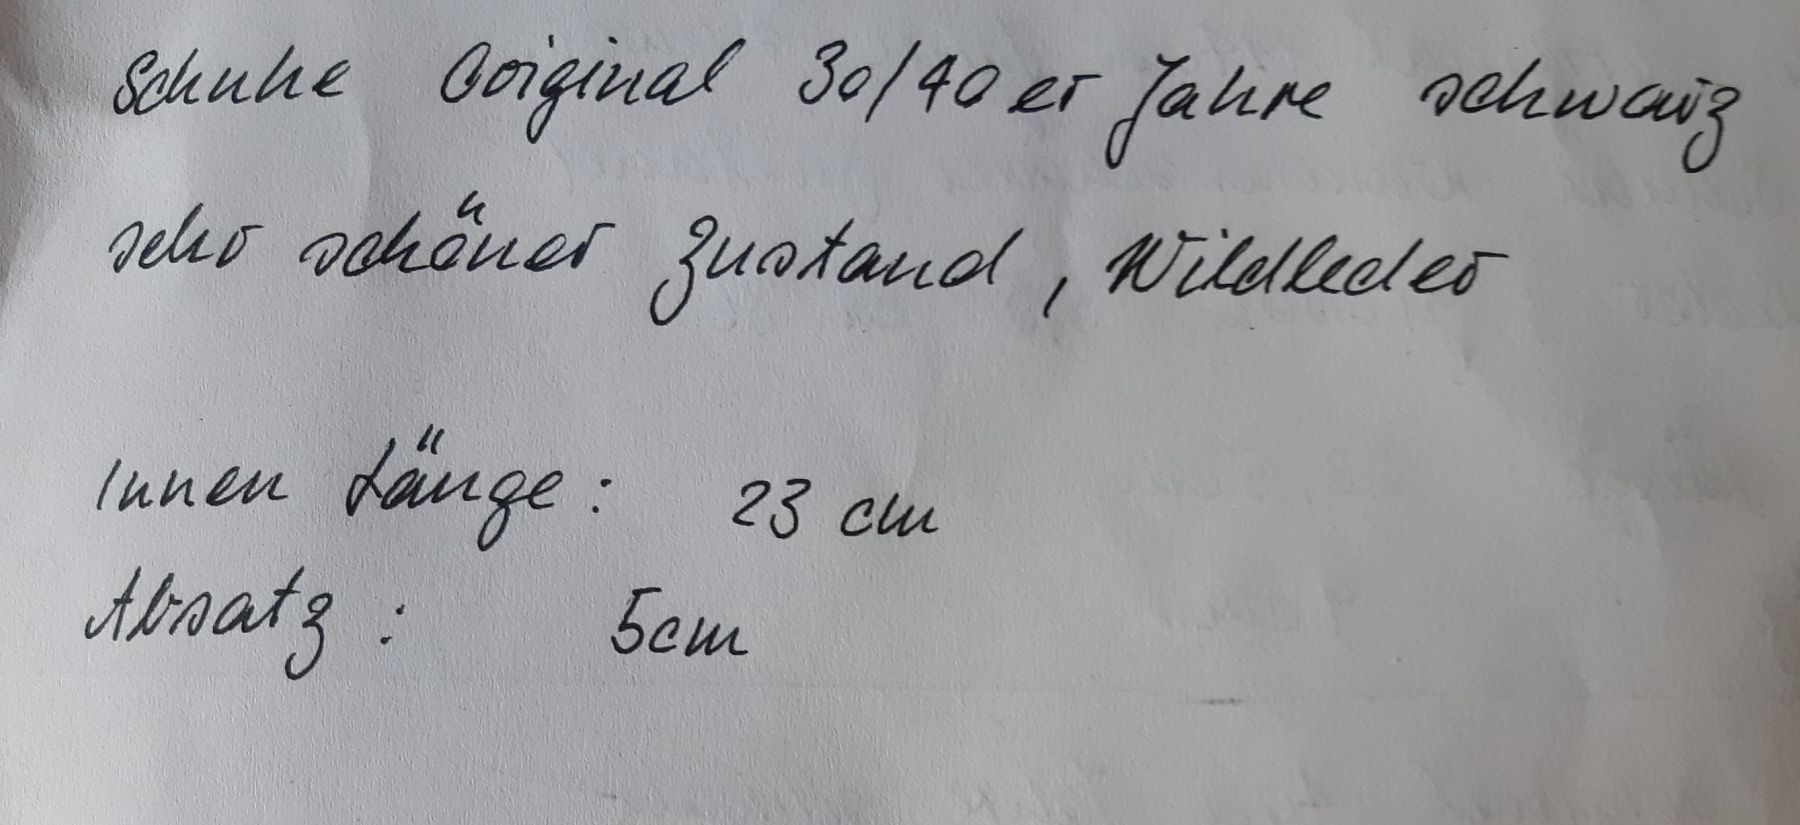 Schuhe Original 30/40er Jahre schwarz
sehr schöner Zustand, Wildleder
Innen Länge: 23 cm
Absatz: 5cm